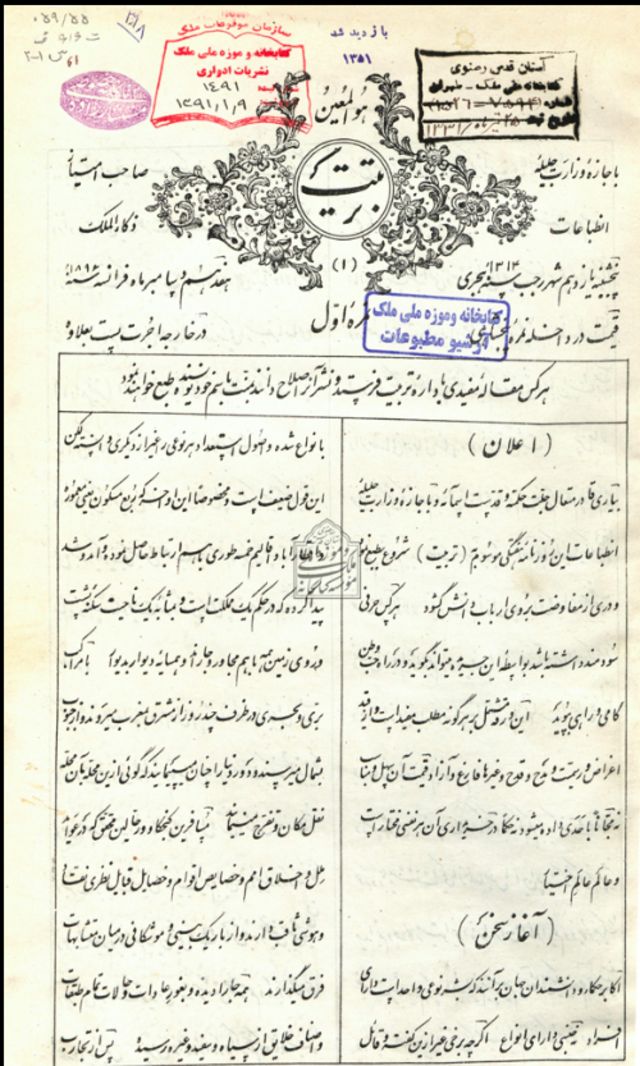 سازمان موقوفات ملک
کتابخانه و موزه ملی ملک
نشریات ادواری
۱۴۹۱
۱۳۹۱,۱,۹
باز دید شد
۱۳۵۱
آستان قدس رضوی
کتابخانه ملی ملک - طهران
هو المعین
تربیت
باجازه وزارت جلیله
انطباعات
صاحب امتیاز
ذکاء الملک
پنجشنبه یازدهم شهر رجب سنه ۱۳۱۴ هجری
(۱)
هفدهم دسامبر ماه فرانسه سنه ۱۸۹۶
قیمت در داخله نمره
نمره اول
در خارجه اجرت پست بعلاوه
کتابخانه و موزه ملی ملک
آرشیو مطبوعات
هر کس مقاله مفیدی باداره تربیت فرستد و نشر آنرا صلاح دانند بنسبت باسم خود نویسنده طبع خواهند نمود
(اعلان)
بیاری قادر متعال جلت حکمته و قدست اسمائه و با جازه وزارت جلیله
انطباعات این روزنامه هفتگی موسوم به (تربیت) شروع بطبع نمود
و دری از مفاوضت بروی ارباب دانش گشود هر کس حرفی
سودمند داشته باشد بواسطه این جریده میتواند بگوید و در راه حب وطن
کامی و راهی بپوید این ورقه مشتمل بر هر گونه مطلب مفید است و از قید
اغراض و رسمیت و مدح و قدح و غیرها فارغ و آزاد قیمت آن سهل و مناسب
نه مجاناً باحدی داده میشود نه کسی در خریداری آن هر نفسی مختار است
و عالم عالم اختیار
(آغاز سخن)
اکابر حکما و دانشمندان جهان برآنند که بشر نوعی واحد است دارای
افراد نه جنسی دارای انواع اگر چه برخی غیر از این گفته و قائل
بانواع شده و اصول استعداد هر نوعی را غیر از دیگری دانسته لیکن
این قول ضعیف است و مخصوصا این اواخر که ربع مسکون یعنی معموره
آباد و اقالیم خمسه طوری با هم ارتباط حاصل نموده و آمد و شد
پیدا کرده که در حکم یک مملکت است و بمثابه یک ناحیت سکنه پشت
و روی زمین همه با هم مجاور و جارند و همسایه دیوار بدیوار با مراکب
بری و بحری در ظرف چند روز از مشرق بمغرب میروند و از جنوب
بشمال میرسند و دور دنیا را چنان میپیمایند که گوئی از این محله بآن محله
نقل مکان و تفرج مینمایند مسافرین کنجکاو و رحالین محقق که در عوائد
ملل و اخلاق امم و خصایص اقوام و خصایل قبایل نظری نقاد
و هوشی ثاقب دارند و از باریک بینی و موشکافی در میان متشابهات
فرق میگذارند همه جا را دیده و بغور عادات و حالات تمام طبقات
و اصناف خلایق از سیاه و سفید و غیره رسیده پس از تجارب